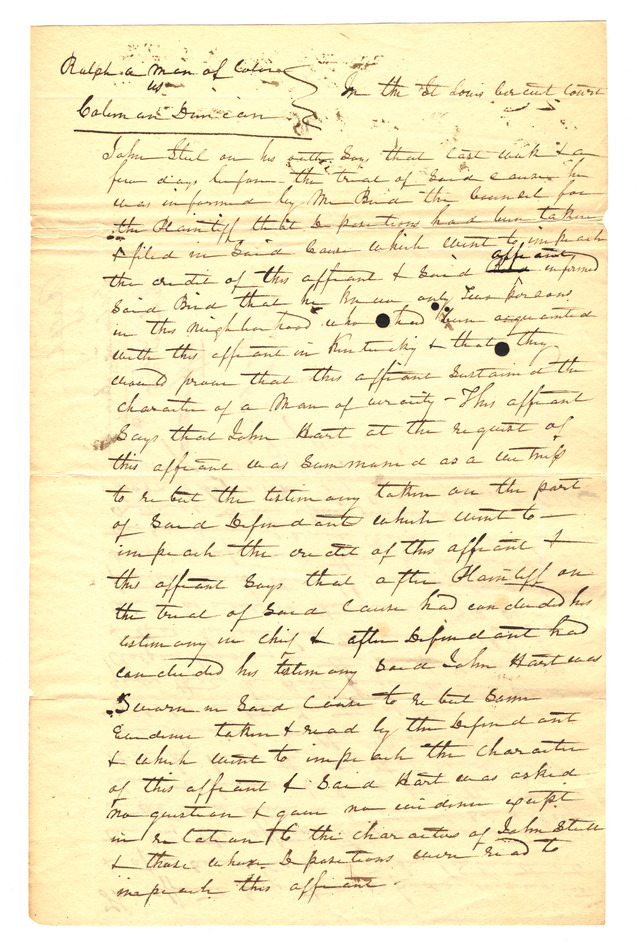 Ralph a man of Color
vs
Coleman Duncan
In the St Louis Circuit Court
John Stul on his oath Says that last week & a
few days before the trial of Said cause he
was informed by Mr Bird the Counsel for
the Plaintiff that Depositions had been taken
& filed in Said Cause which went to impeach
affiant
the credit of this affiant & Said informed
Said Bird that he knew only Two persons
in this Neighborhood who had been acquainted
with this affiant in Kentucky & that they
would prove that this affiant Sustained the
character of a Man of veracity – This affiant
Says that John Hart at the request of
this affiant was Summoned as a witness
to rebut the testimony taken on the part
of Said Defendant which went to –
impeach the credit of this affiant &
this affiant Says that after Plaintiff on
the trial of Said Cause had concluded his
testimony in chief & after Defendant had
concluded his testimony Said John Hart was
Sworn in Said Cause to rebut Some
Evidence taken & read by the Defendant
& which went to impeach the Character
of this affiant & Said Hart was asked
no question & gave no evidence except
in relation to the character of John Steel
& those whose Depositions were read to
impeach this affiant .